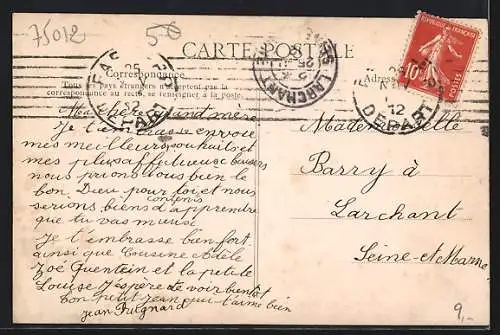 75012
50
CARTE POSTALE
Correspondance
Tous les pays étrangers n'acceptent pas la
correspondance au recto, se renseigner à la poste.
Ma chère Grand mère
Je t'embrasse envoie
mes meilleurs souhaits et
mes plus affectueuse baisers
nous prions tous bien le
bon Dieu pour toi et nous
serions biens contents d'apprendre
que tu vas mieuse
Je t'embrasse bien fort
ainsi que Cousine Adèle
Zoé Quentein et la petite
Louise J'espère te voir bientôt
ton petit Jean qui t'aime bien
Jean Prugnard
REPUBLIQUE FRANÇAISE
10
POSTES
LARCHANT
DEPART
12
25
Adresse
Mademoiselle
Barry à
Larchant
Seine-et-Marne
9,-